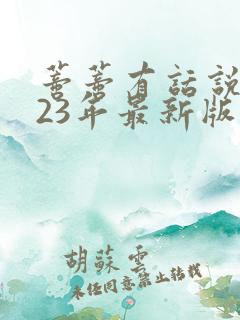 蔷蔷有話説
23年最新版
胡蘇雲
未经同意禁止转载